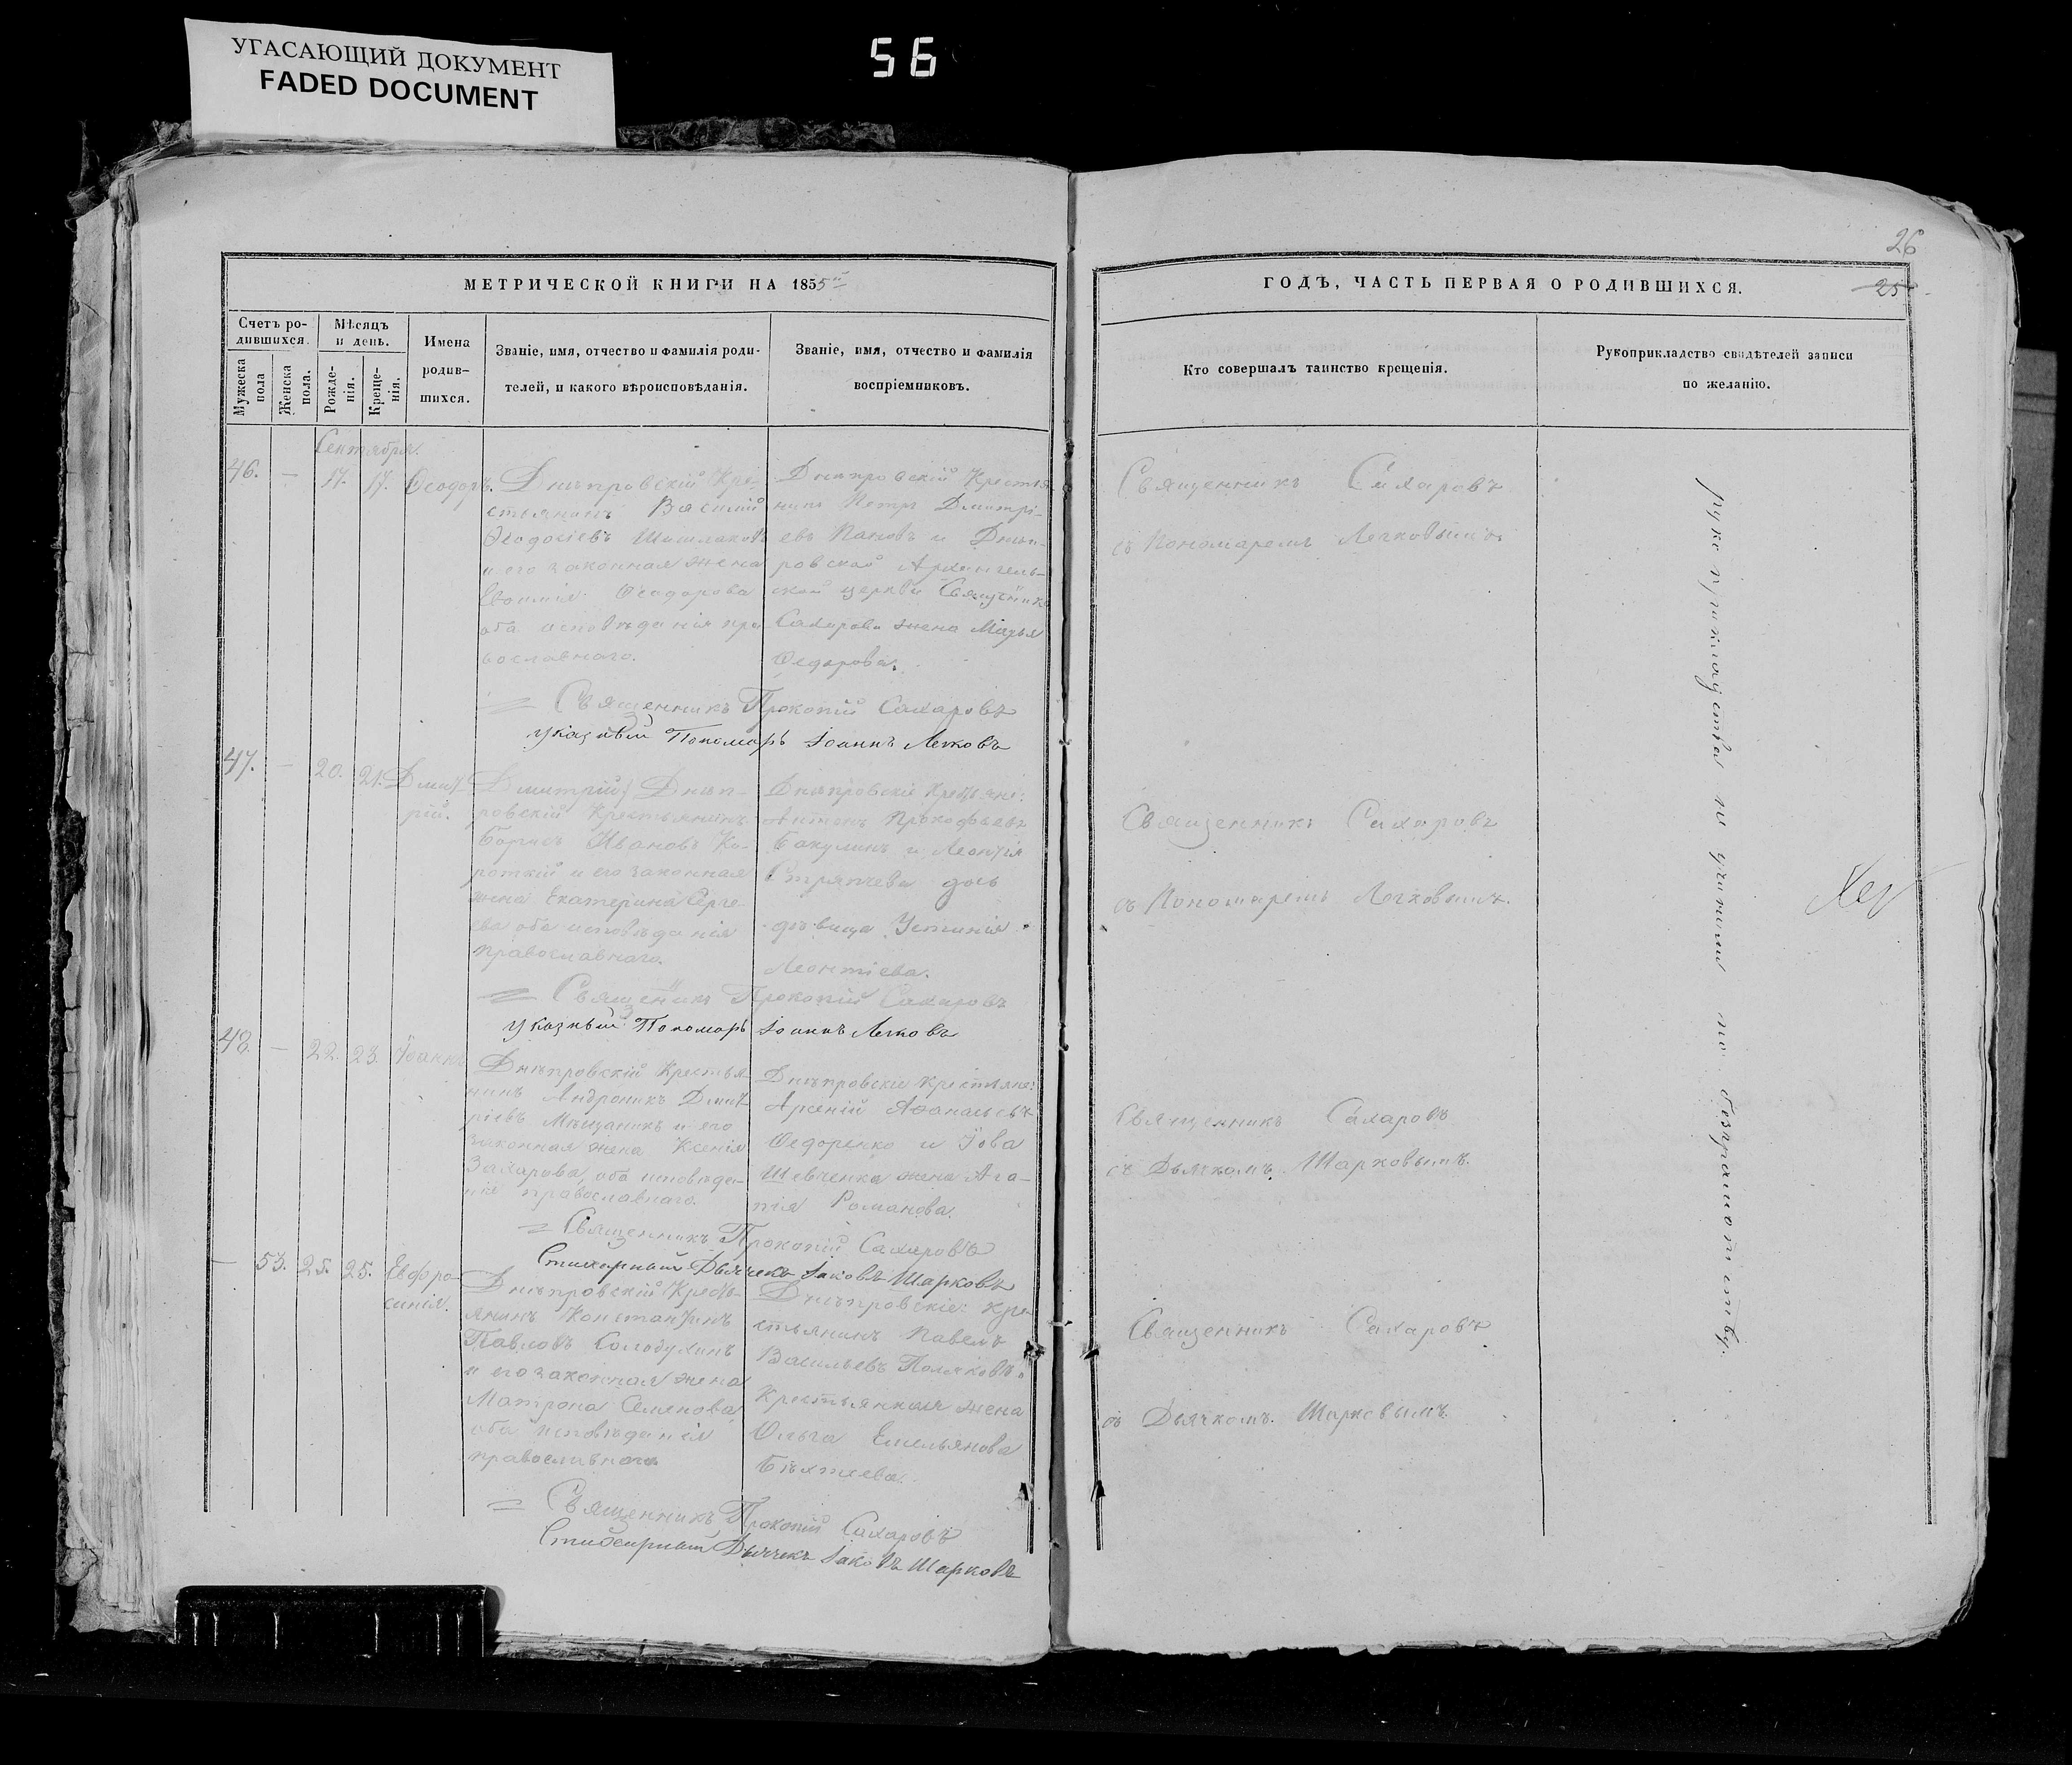 УГАСАЮЩИЙ ДОКУМЕНТ
FADED DOCUMENT
56
26
25
МЕТРИЧЕСКОЙ КНИГИ НА 1855й
ГОДЪ, ЧАСТЬ ПЕРВАЯ О РОДИВШИХСЯ.
Счетъ ро-
дившихся.
Мужеска пола
Женска пола.
Мѣсяцъ
и день.
Рожде-
нія.
Креще-
нія.
Имена
родив-
шихся.
Званіе, имя, отчество и фамилія роди-
телей, и какого вѣроисповѣданія.
Званіе, имя, отчество и фамилія
воспріемниковъ.
Кто совершалъ таинство крещенія.
Рукоприкладство свидѣтелей записи
по желанію.
Сентября.
46. — 17. 17. Ѳеодоръ.
Днѣпровскій Кре-
стьянинъ Василій
Ѳеодосіевъ
и его законная жена
Ѳеодорова
оба исповѣданія пра-
вославнаго.
Днѣпровскій Крестья
нинъ Петръ Дмитрі-
евъ Пановъ и Днѣп-
ровской Архангель-
ской церкви Священника
Сахарова жена Марья
Ѳедорова.
Священникъ Сахаровъ
съ Пономаремъ Легковымъ
Священникъ Прокопій Сахаровъ
Указный Пономарь Іоаннъ Легковъ
47. — 20. 21. Дмит-
рій.
Дмитрій} Днѣп-
ровскій Крестьянинъ
Борисъ Ивановъ Ко-
роткій и его законная
жена Екатерина Серге-
ева оба исповѣданія
православнаго.
Днѣпровскіе Крестьяне:
Антонъ Прокофьевъ
Бакулинъ и Леонтія
Стряпчева дочь
дѣвица Устинія
Леонтіева.
Священникъ Сахаровъ
съ Пономаремъ Легковымъ.
Священникъ Прокопій Сахаровъ
Указный Пономарь Іоаннъ Легковъ
48. — 22. 23. Іоаннъ
Днѣпровскій Крестья-
нинъ Андроникъ Дмит-
ріевъ Мѣщаникъ и его
законная жена Ксенія
Захарова, оба исповѣда-
нія православнаго.
Днѣпровскіе крестьяне:
Арсеній Аѳанасьевъ
Ѳедоренко и Іова
Шевченка жена Ага-
пія Романова.
Священникъ Сахаровъ
съ Дьячкомъ Шарковымъ.
Священникъ Прокопій Сахаровъ
Стихарный Дьячекъ Іаковъ Шарковъ
— 53. 25. 25. Евфро-
синія.
Днѣпровскій Кресть-
янинъ Константинъ
Павловъ Солодухинъ
и его законная жена
Матрона Семенова
оба исповѣданія
православнаго
Днѣпровскіе: Кре-
стьянинъ Павелъ
Васильевъ Поляковъ и
Крестьянина жена
Ольга Емельянова
Бѣхтеева.
Священникъ Сахаровъ
съ Дьячкомъ Шарковымъ.
Священникъ Прокопій Сахаровъ
Стихарный Дьячекъ Іаковъ Шарковъ